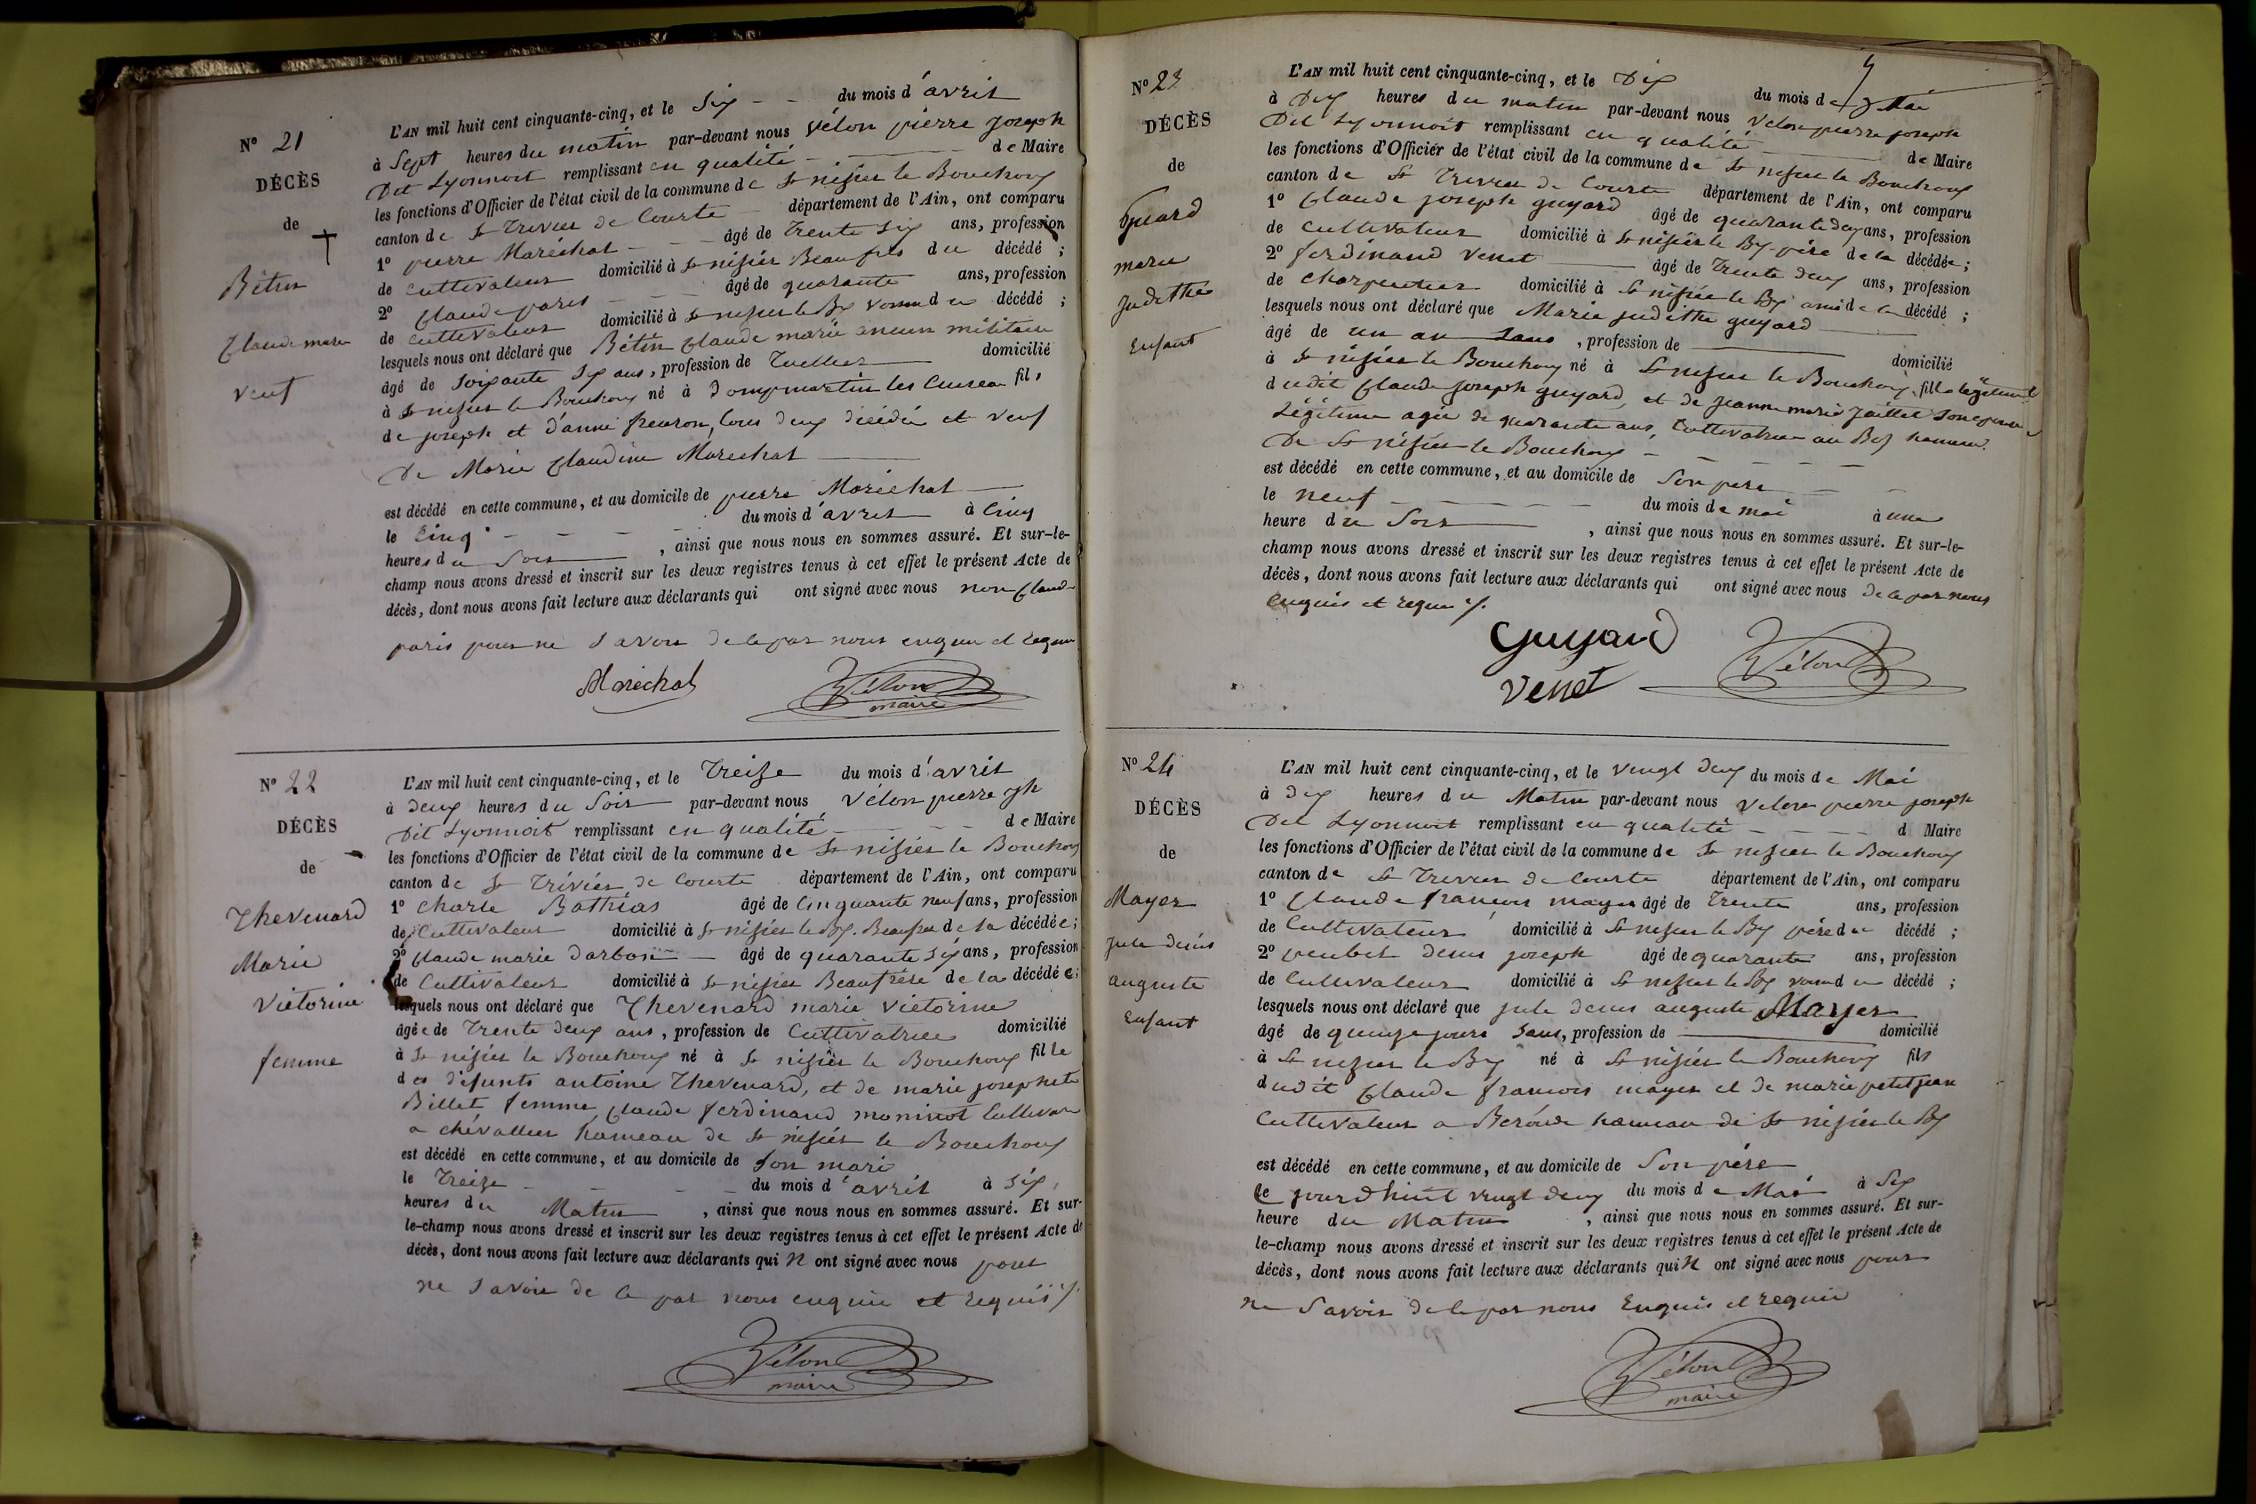 N° 21
DÉCÈS
de
Bétin
Claude marie
veuf
L'AN mil huit cent cinquante-cinq, et le Six du mois d'avril
à Sept heures du matin par-devant nous Vélon pierre joseph
Dit Lyonnoit remplissant en qualité de Maire
les fonctions d'Officier de l'état civil de la commune de St nisier le Bouchoux
canton de St Trivier de Courte département de l'Ain, ont comparu
1° pierre Maréchal âgé de trente six ans, profession
de cultivateur domicilié à St nisier Beaufils du décédé ;
2° Claude paris âgé de quarante ans, profession
de cultivateur domicilié à St nisier le Bx voisin du décédé ;
lesquels nous ont déclaré que Bétin Claude marie ancien militaire
âgé de soixante six ans, profession de domicilié
à St nisier le Bouchoux né à Dompmartin les Cuiseau fils
de joseph et d'anne freuron, tous deux décédés et veuf
De Marie Claudine Marechal
est décédé en cette commune, et au domicile de pierre Maréchal
le Cinq du mois d'avril à Cinq
heures du Soir, ainsi que nous nous en sommes assuré. Et sur-le-
champ nous avons dressé et inscrit sur les deux registres tenus à cet effet le présent Acte de
décès, dont nous avons fait lecture aux déclarants qui ont signé avec nous non Claude
paris pour ne savoir de le par nous enquis et requis
Maréchal
Vélon
maire
N° 22
DÉCÈS
de
Thevenard
Marie
Victorine
femme
L'AN mil huit cent cinquante-cinq, et le Treize du mois d'avril
à deux heures du Soir par-devant nous Vélon pierre jh
Dit Lyonnoit remplissant en qualité de Maire
les fonctions d'Officier de l'état civil de la commune de St nisier le Bouchoux
canton de St Trivier de Courte département de l'Ain, ont comparu
1° Charle Bathias âgé de Cinquante neuf ans, profession
de Cultivateur domicilié à St nisier le Bx. Beaufrere de la décédée ;
2° Claude marie darbon âgé de quarante six ans, profession
de Cultivateur domicilié à St nisier Beaufrére de la décédée ;
lesquels nous ont déclaré que Thevenard marie victorine
âgée de Trente deux ans, profession de Cultivatrice domicilié
à St nisier le Bouchoux né à St nisier le Bouchoux fille
des défunts antoine Thevenard, et de marie josephete
Billet femme Claude ferdinand moninot Cultivateur
a chévallier hameau de St nisier le Bouchoux
est décédé en cette commune, et au domicile de son mari
le Treize du mois d'avril à six
heures du Matin, ainsi que nous nous en sommes assuré. Et sur-
le-champ nous avons dressé et inscrit sur les deux registres tenus à cet effet le présent Acte de
décès, dont nous avons fait lecture aux déclarants qui n ont signé avec nous pour
ne savoir de le par nous enquis et requis
Vélon
maire
N° 23
DÉCÈS
de
Guiard
marie
Judithe
Enfant
L'AN mil huit cent cinquante-cinq, et le Dix du mois de Mai
à Dix heures du matin par-devant nous Velon pierre joseph
Dit Lyonnoit remplissant en qualité de Maire
les fonctions d'Officier de l'état civil de la commune de St nisier le Bouchoux
canton de St Trivier de Courte département de l'Ain, ont comparu
1° Claude joseph guyard âgé de quarante deux ans, profession
de cultivateur domicilié à St nisier le Bx père de la décédée ;
2° ferdinand Venet âgé de Trente deux ans, profession
de charpentier domicilié à St nisier le Bx ami de la décédé ;
lesquels nous ont déclaré que Marie judithe guyard
âgé de un an sans, profession de domicilié
à St nisier le Bouchoux né à St nisier le Bouchoux, fille légitime
dudit Claude joseph guyard, et de jeanne marie jaillet son épouse
Légitime agée de quarante ans, Cultivateur au hameau
De St nisier le Bouchoux
est décédé en cette commune, et au domicile de son père
le neuf du mois de mai à une
heure du Soir, ainsi que nous nous en sommes assuré. Et sur-le-
champ nous avons dressé et inscrit sur les deux registres tenus à cet effet le présent Acte de
décès, dont nous avons fait lecture aux déclarants qui ont signé avec nous de le par nous
enquis et requis
Guyard
Venet
Vélon
N° 24
DÉCÈS
de
Mayer
jule denis
auguste
Enfant
L'AN mil huit cent cinquante-cinq, et le vingt deux du mois de Mai
à dix heures du Matin par-devant nous Velon pierre joseph
Dit Lyonnoit remplissant en qualité d Maire
les fonctions d'Officier de l'état civil de la commune de St nisier le Bouchoux
canton de St Trivier de Courte département de l'Ain, ont comparu
1° Claude francois mayer âgé de Trente ans, profession
de Cultivateur domicilié à St nisier le Bx père du décédé ;
2° denis joseph âgé de quarante ans, profession
de Cultivateur domicilié à St nisier le Bx voisin du décédé ;
lesquels nous ont déclaré que jule denis auguste Mayer
âgé de quinze jours sans, profession de domicilié
à St nisier le Bx né à St nisier le Bouchoux fils
dudit Claude francois mayer et de marie petitjean
Cultivateur a Béróude hameau de St nisier le Bx
est décédé en cette commune, et au domicile de Son père
le jourdhuit vingt deux du mois de Mai à Six
heure du Matin, ainsi que nous nous en sommes assuré. Et sur-
le-champ nous avons dressé et inscrit sur les deux registres tenus à cet effet le présent Acte de
décès, dont nous avons fait lecture aux déclarants qui n ont signé avec nous pour
ne Savoir de le par nous Enquis et requis
Vélon
maire